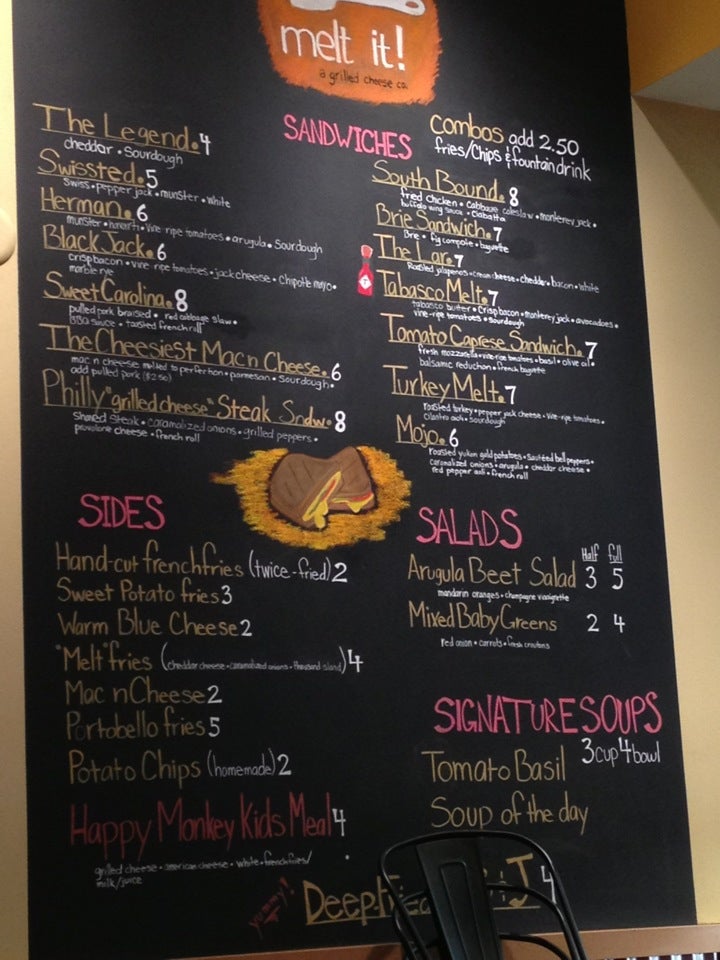 melt it!
a grilled cheese co.
SANDWICHES
The Legend. 4
cheddar • Sourdough
Swissted. 5
Swiss • pepper jack • munster • white
Herman. 6
munster • havarti • Vine-ripe tomatoes • arugula • Sourdough
Black Jack. 6
crisp bacon • vine-ripe tomatoes • jack cheese • Chipotle mayo •
marble rye
Sweet Carolina. 8
pulled pork braised • red cabbage slaw •
BBQ sauce • toasted french roll
The Cheesiest Mac n Cheese. 6
mac n cheese melted to perfection • parmesan • Sourdough •
add pulled pork ($2.50)
Philly "grilled cheese" Steak Sndw. 8
Shaved Steak • caramalized onions • grilled peppers •
provolone cheese • french roll
Combos add 2.50
fries/Chips & fountain drink
South Bound. 8
fried chicken • Cabbage coleslaw • monterey jack •
buffalo wing sauce • Ciabatta
Brie Sandwich. 7
Brie • fig compote • baguette
The Lar. 7
Roasted jalapenos • cream cheese • cheddar • bacon • white
Tabasco Melt. 7
tabasco butter • Crisp bacon • monterey jack • avocadoes •
vine-ripe tomatoes • sourdough
Tomato Caprese Sandwich. 7
fresh mozzarella • vine ripe tomatoes • basil • olive oil •
balsamic reduction • french baguette
Turkey Melt. 7
roasted turkey • pepper jack cheese • Vine-ripe tomatoes •
cilantro aioli • sourdough
Mojo. 6
roasted yukon gold potatoes • sautéed bell peppers •
caramalized onions • arugula • cheddar cheese •
red pepper aoli • french roll
SIDES
Hand-cut french fries (twice-fried) 2
Sweet Potato fries 3
Warm Blue Cheese 2
"Melt" fries (cheddar cheese • caramalized onions • thousand island) 4
Mac n Cheese 2
Portobello fries 5
Potato Chips (homemade) 2
Happy Monkey Kids Meal 4
grilled cheese • american cheese • white • french fries/
milk/juice
SALADS
Half full
Arugula Beet Salad 3 5
mandarin oranges • champagne vinaigrette
Mixed Baby Greens 2 4
red onion • carrots • fresh croutons
SIGNATURE SOUPS
3 cup 4 bowl
Tomato Basil
Soup of the day
yummy!
Deep Fried J 4